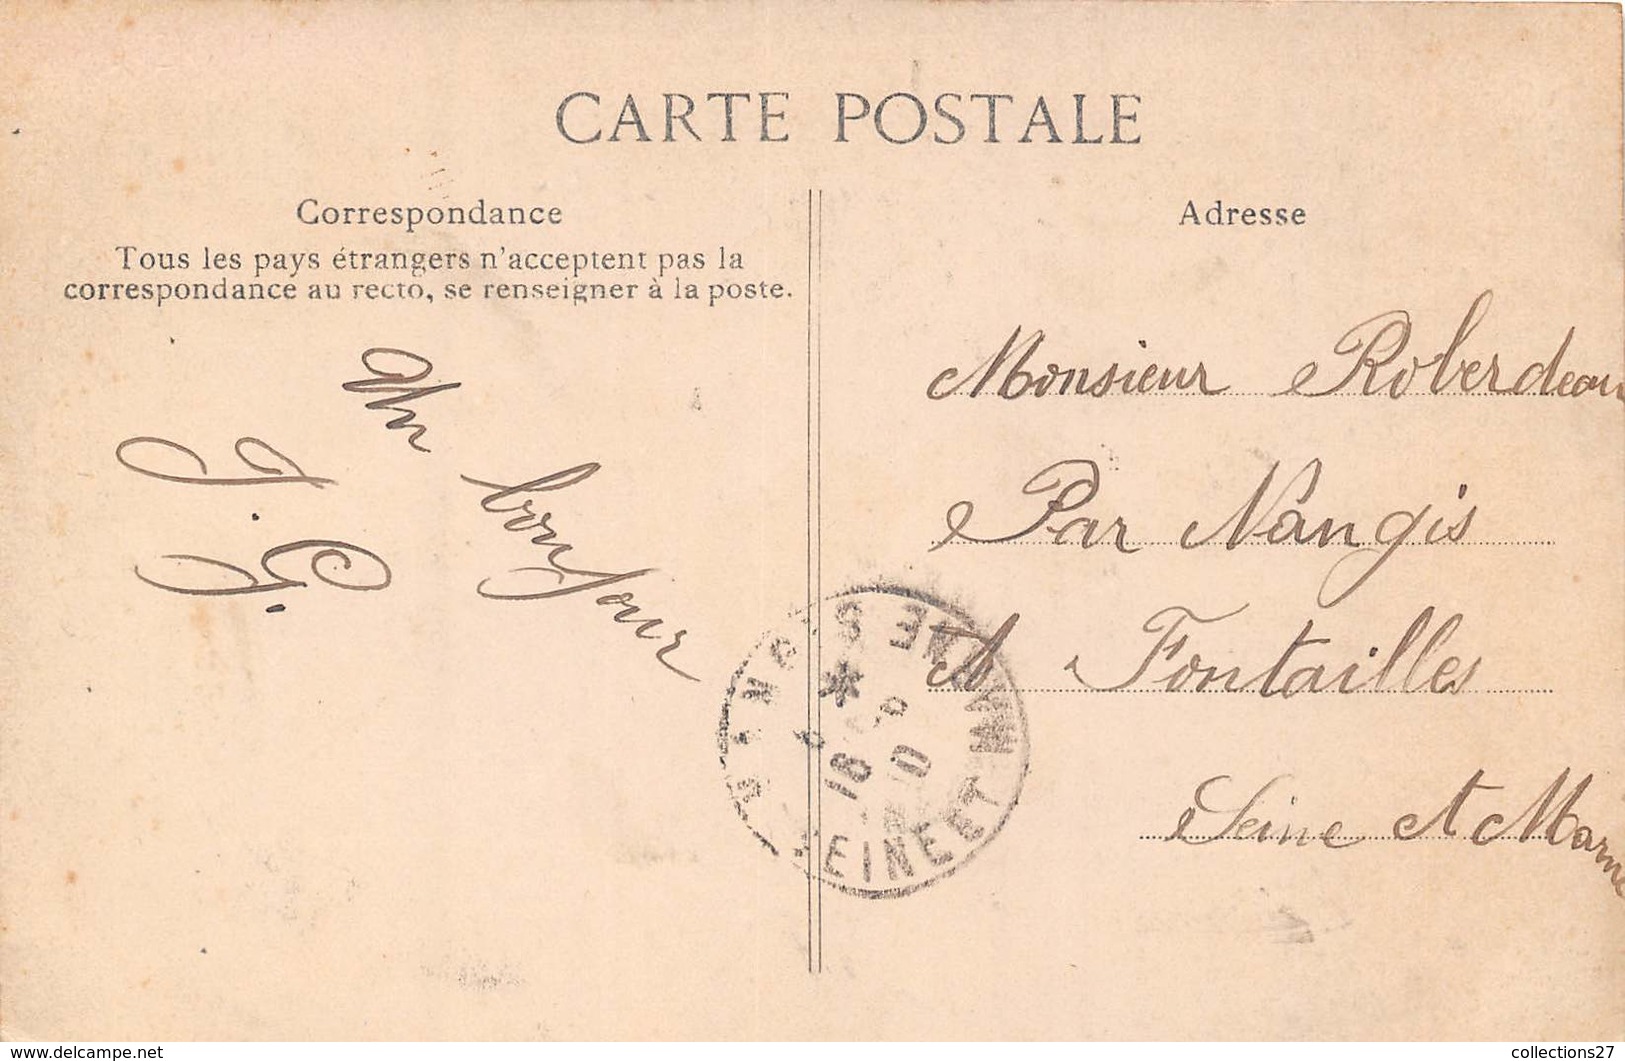 CARTE POSTALE
Correspondance
Tous les pays étrangers n'acceptent pas la
correspondance au recto, se renseigner à la poste.
Un bonjour
J. G.
Adresse
Monsieur Roberdeau
Par Nangis
A Fontailles
Seine et Marne
NANGIS SEINE ET MARNE
18
www.delcampe.net
collections27